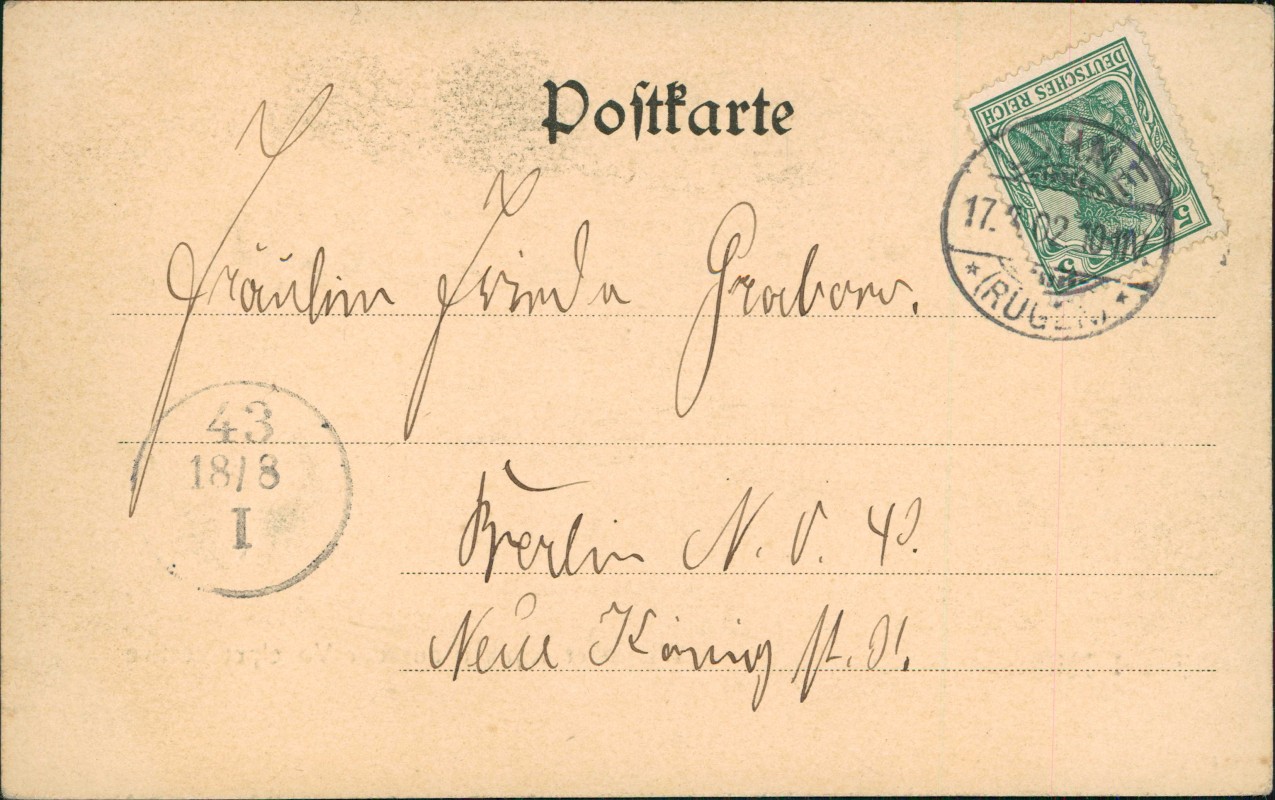 Postkarte
DEUTSCHES REICH
5 5
17. 02 10-11V.
*(RÜGEN)*
Fräulein Frieda Grabow.
43
18/8
I
Berlin N. O. 43.
Neue König st.